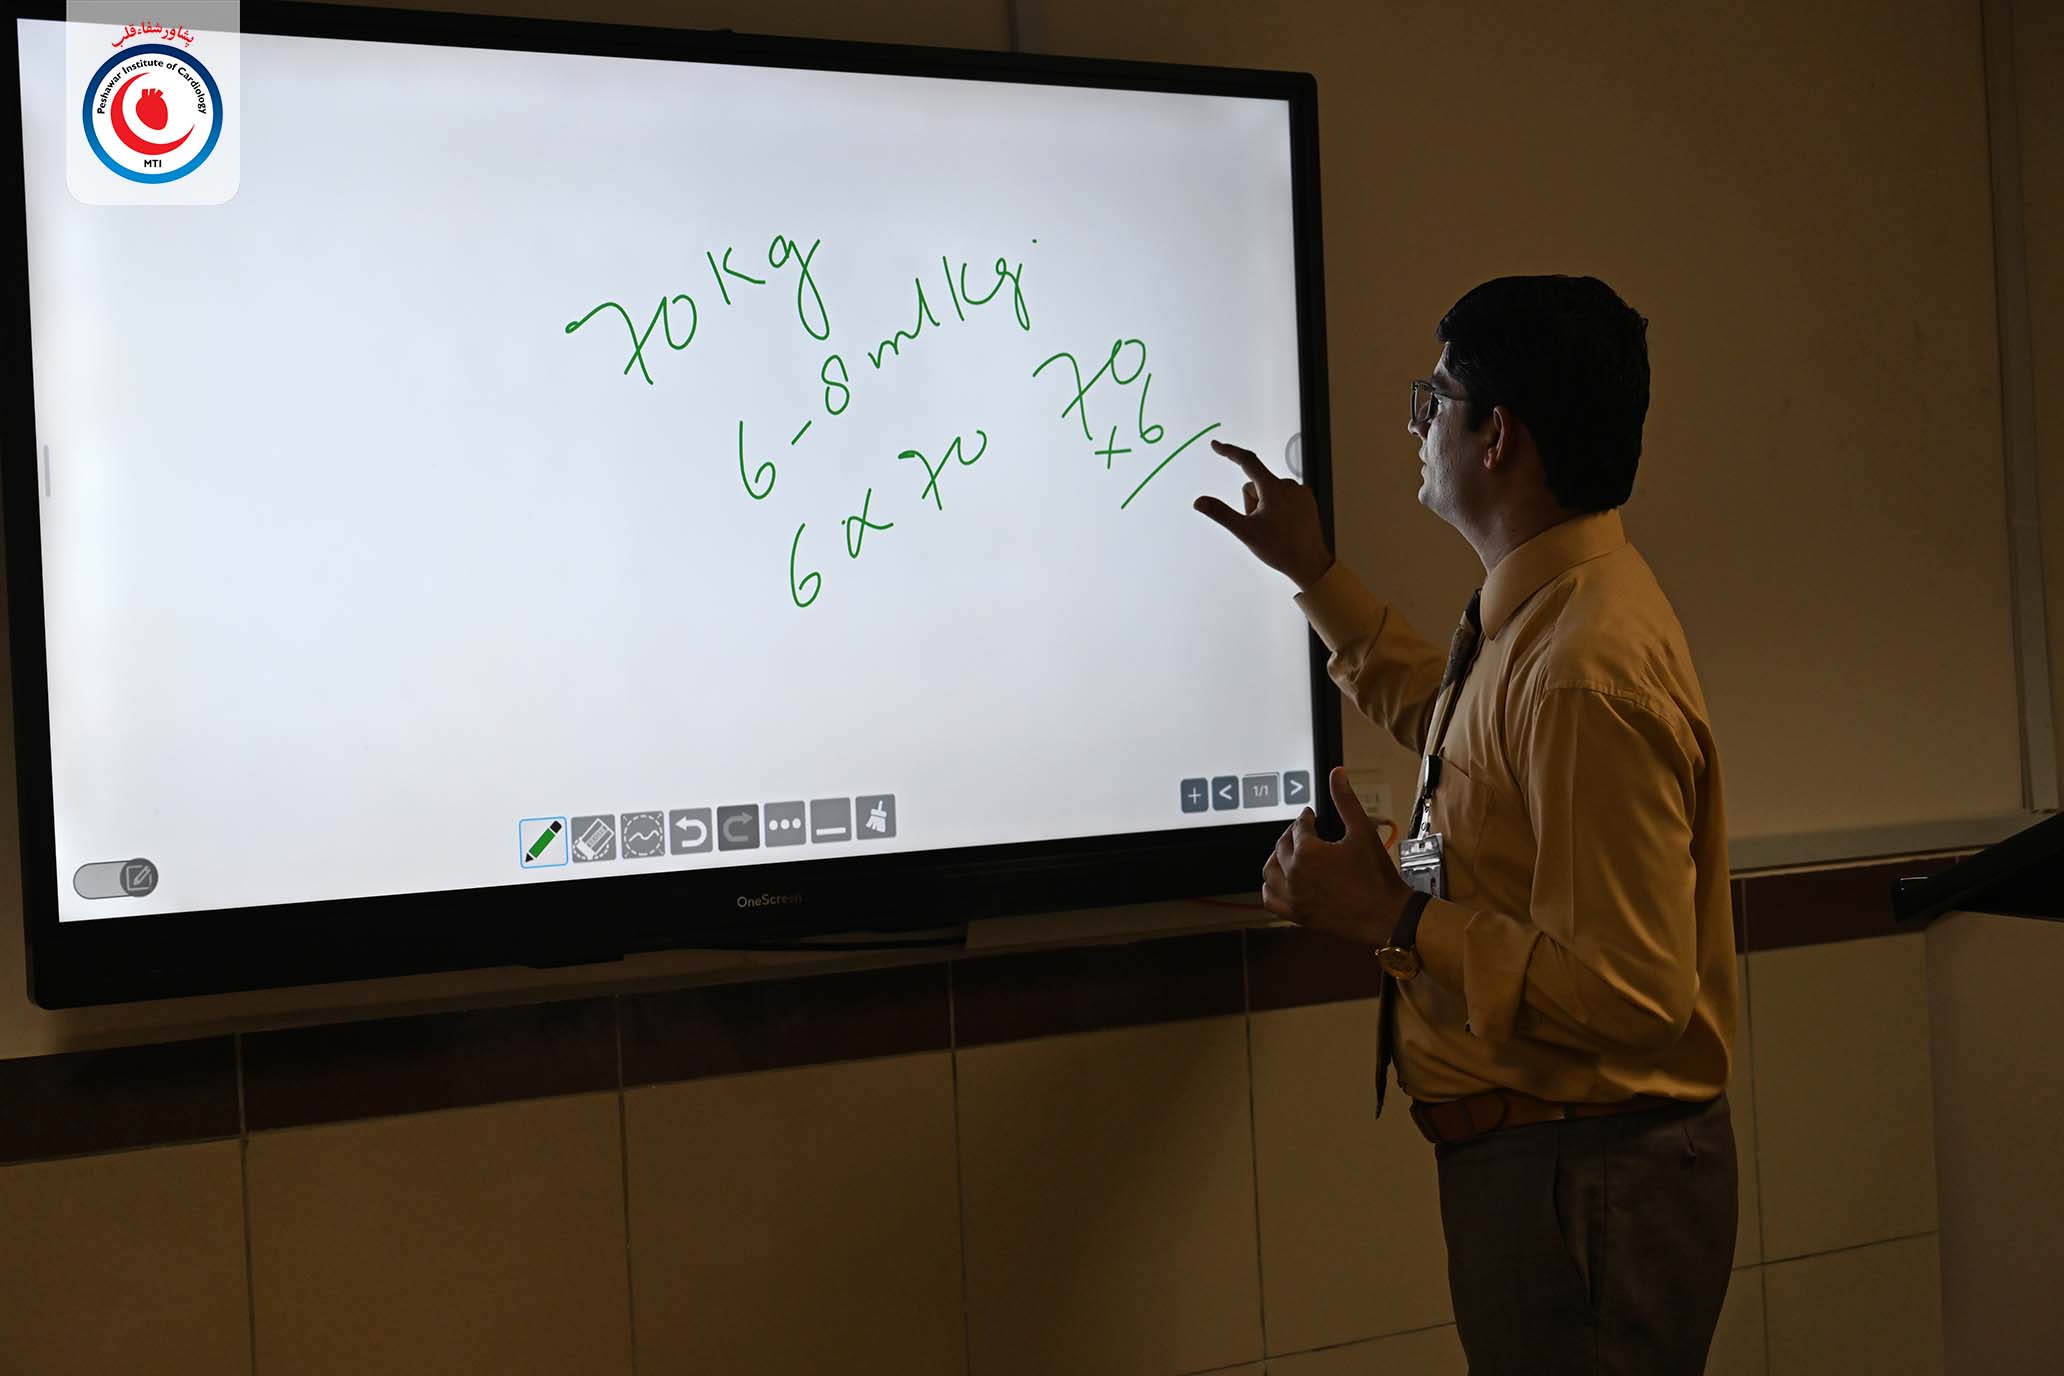 پشاور شفاء قلب
Peshawar Institute of Cardiology
MTI
70 Kg
6 - 8 ml Kg
6 x 70
70
x 6
1/1
OneScreen